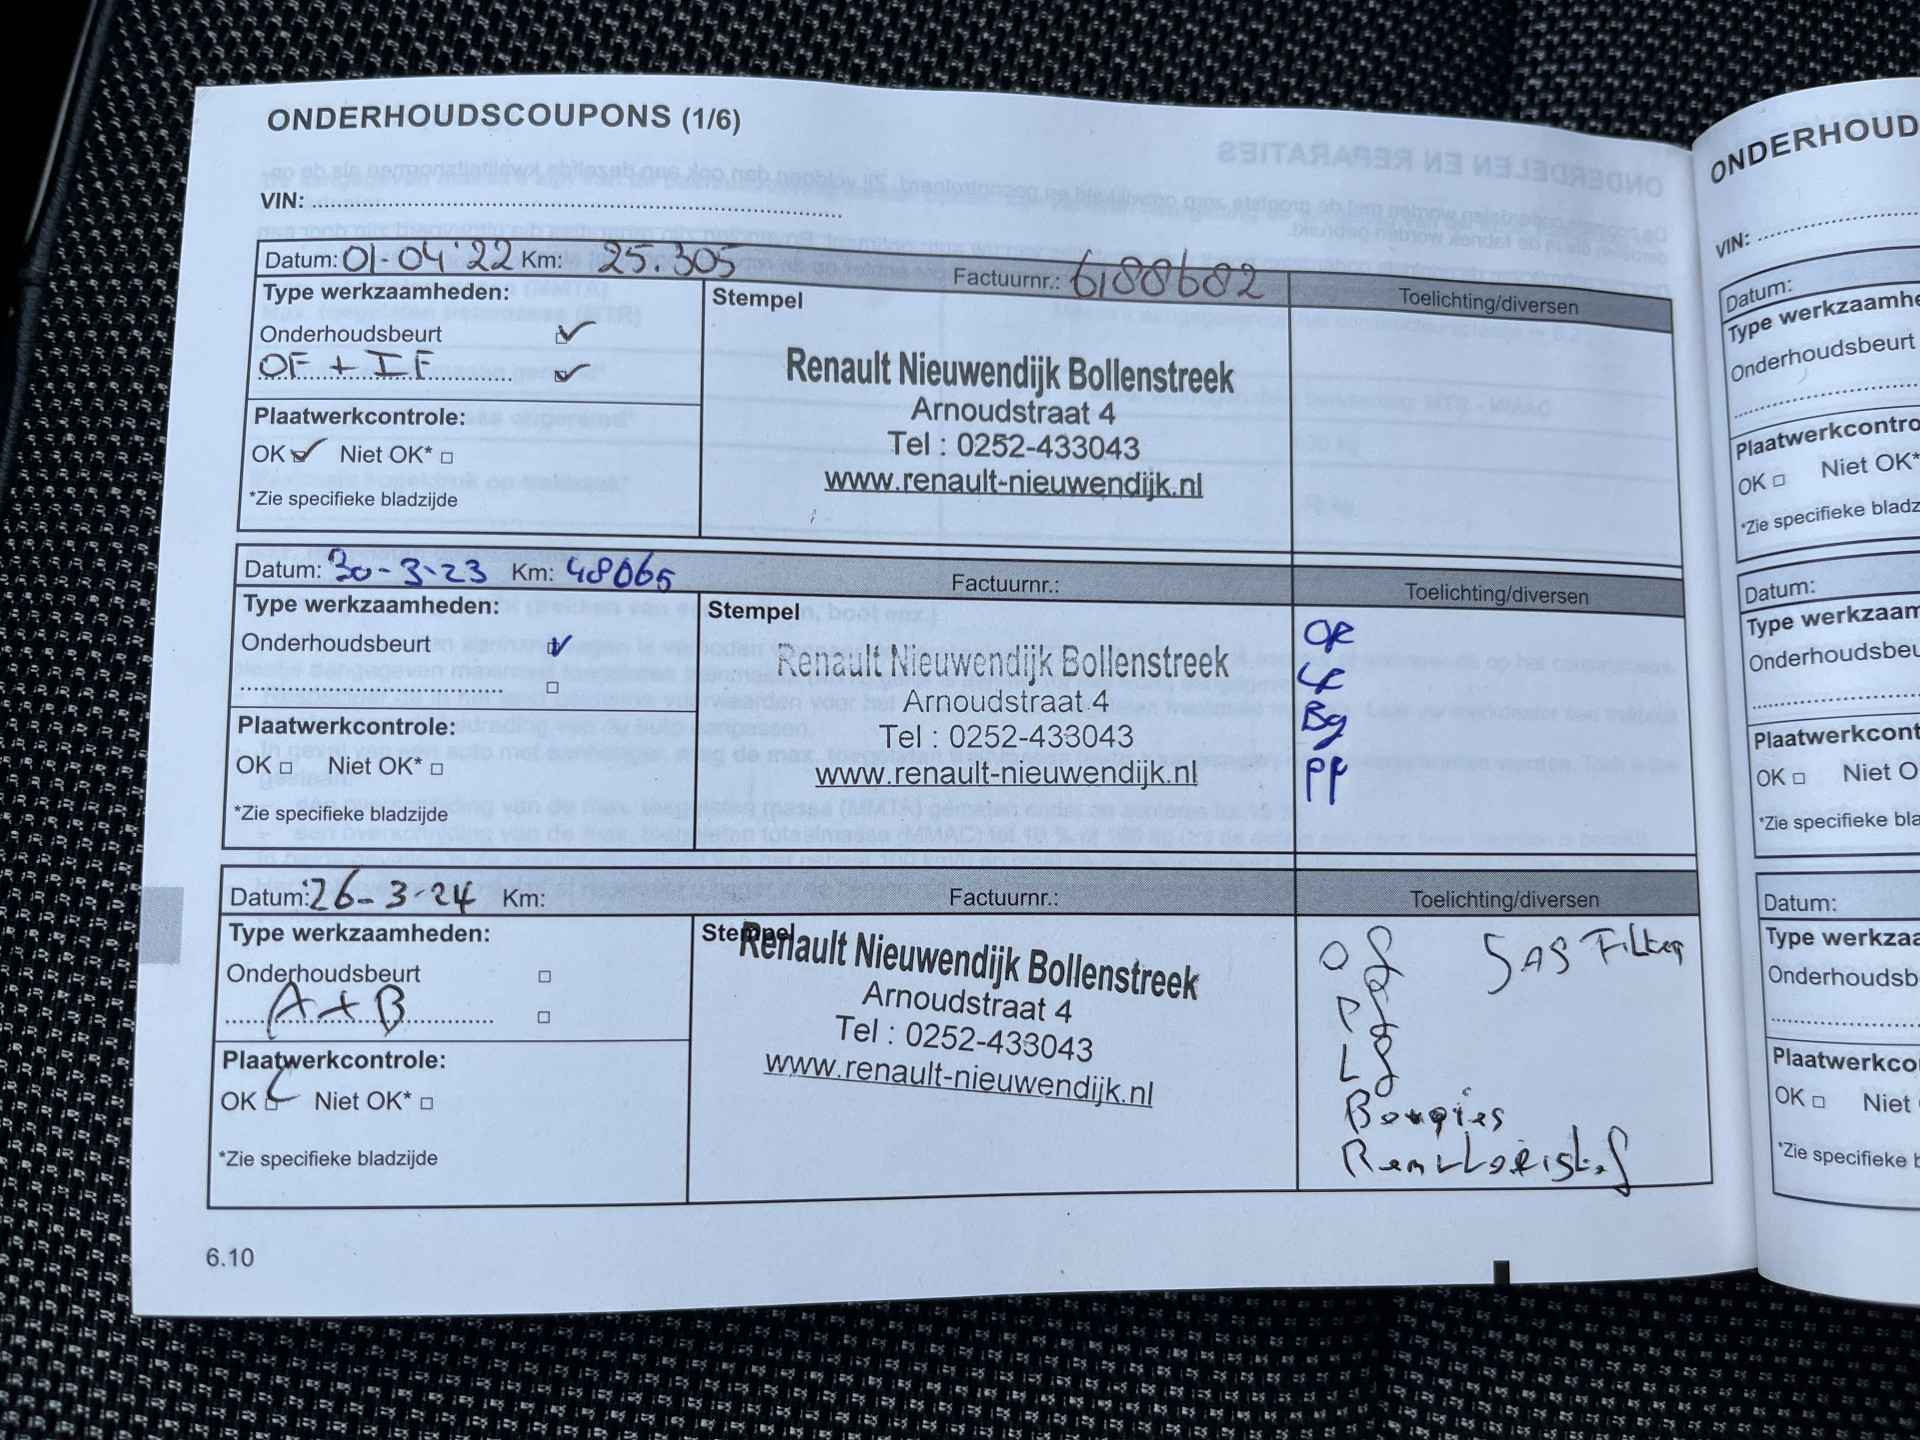 ONDERHOUDSCOUPONS (1/6)
VIN:
Datum: 01-04'22 Km: 25.305 Factuurnr.: 6188682 Toelichting/diversen
Type werkzaamheden:
Stempel
Onderhoudsbeurt
OF + IF
Renault Nieuwendijk Bollenstreek
Arnoudstraat 4
Tel : 0252-433043
www.renault-nieuwendijk.nl
Plaatwerkcontrole:
OK Niet OK*
*Zie specifieke bladzijde
Datum: 30-3-23 Km: 48065 Factuurnr.: Toelichting/diversen
Type werkzaamheden:
Stempel
Onderhoudsbeurt
Renault Nieuwendijk Bollenstreek
Arnoudstraat 4
Tel : 0252-433043
www.renault-nieuwendijk.nl
Bg
Plaatwerkcontrole:
OK Niet OK*
*Zie specifieke bladzijde
Datum: 26-3-24 Km: Factuurnr.: Toelichting/diversen
Type werkzaamheden:
Stempel
Onderhoudsbeurt
A+B
Renault Nieuwendijk Bollenstreek
Arnoudstraat 4
Tel : 0252-433043
www.renault-nieuwendijk.nl
Of Filter
Pf
Lf
Bougies
Remvloeistof
Plaatwerkcontrole:
OK Niet OK*
*Zie specifieke bladzijde
6.10
ONDERHOUD
VIN:
Datum:
Type werkzaamhe
Onderhoudsbeurt
Plaatwerkcontro
OK Niet OK*
*Zie specifieke bladz
Datum:
Type werkzaam
Onderhoudsbeu
Plaatwerkcont
OK Niet O
*Zie specifieke bla
Datum:
Type werkzaa
Onderhoudsb
Plaatwerkco
OK Niet
*Zie specifieke b